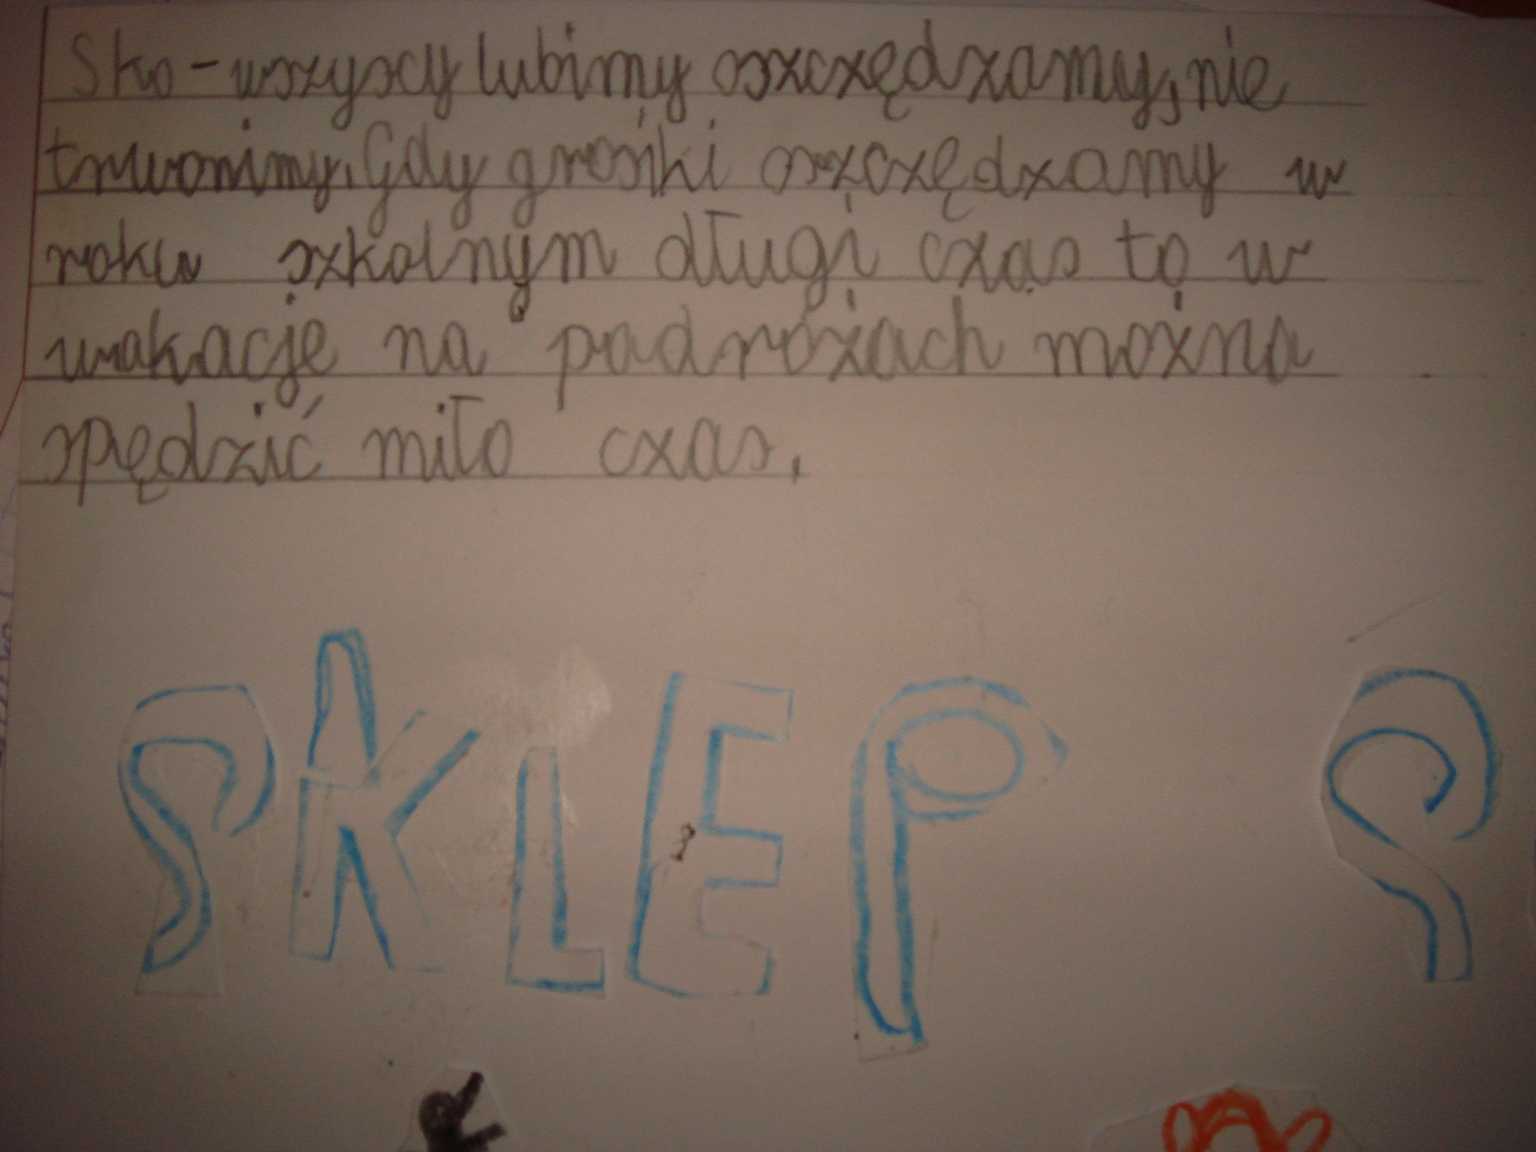 Sko-wszyscy lubimy oszczędzamy, nie
trwonimy. Gdy grosiki oszczędzamy w
roku szkolnym długi czas to w
wakacje na podróżach można
spędzić miło czas.
SKLEP S